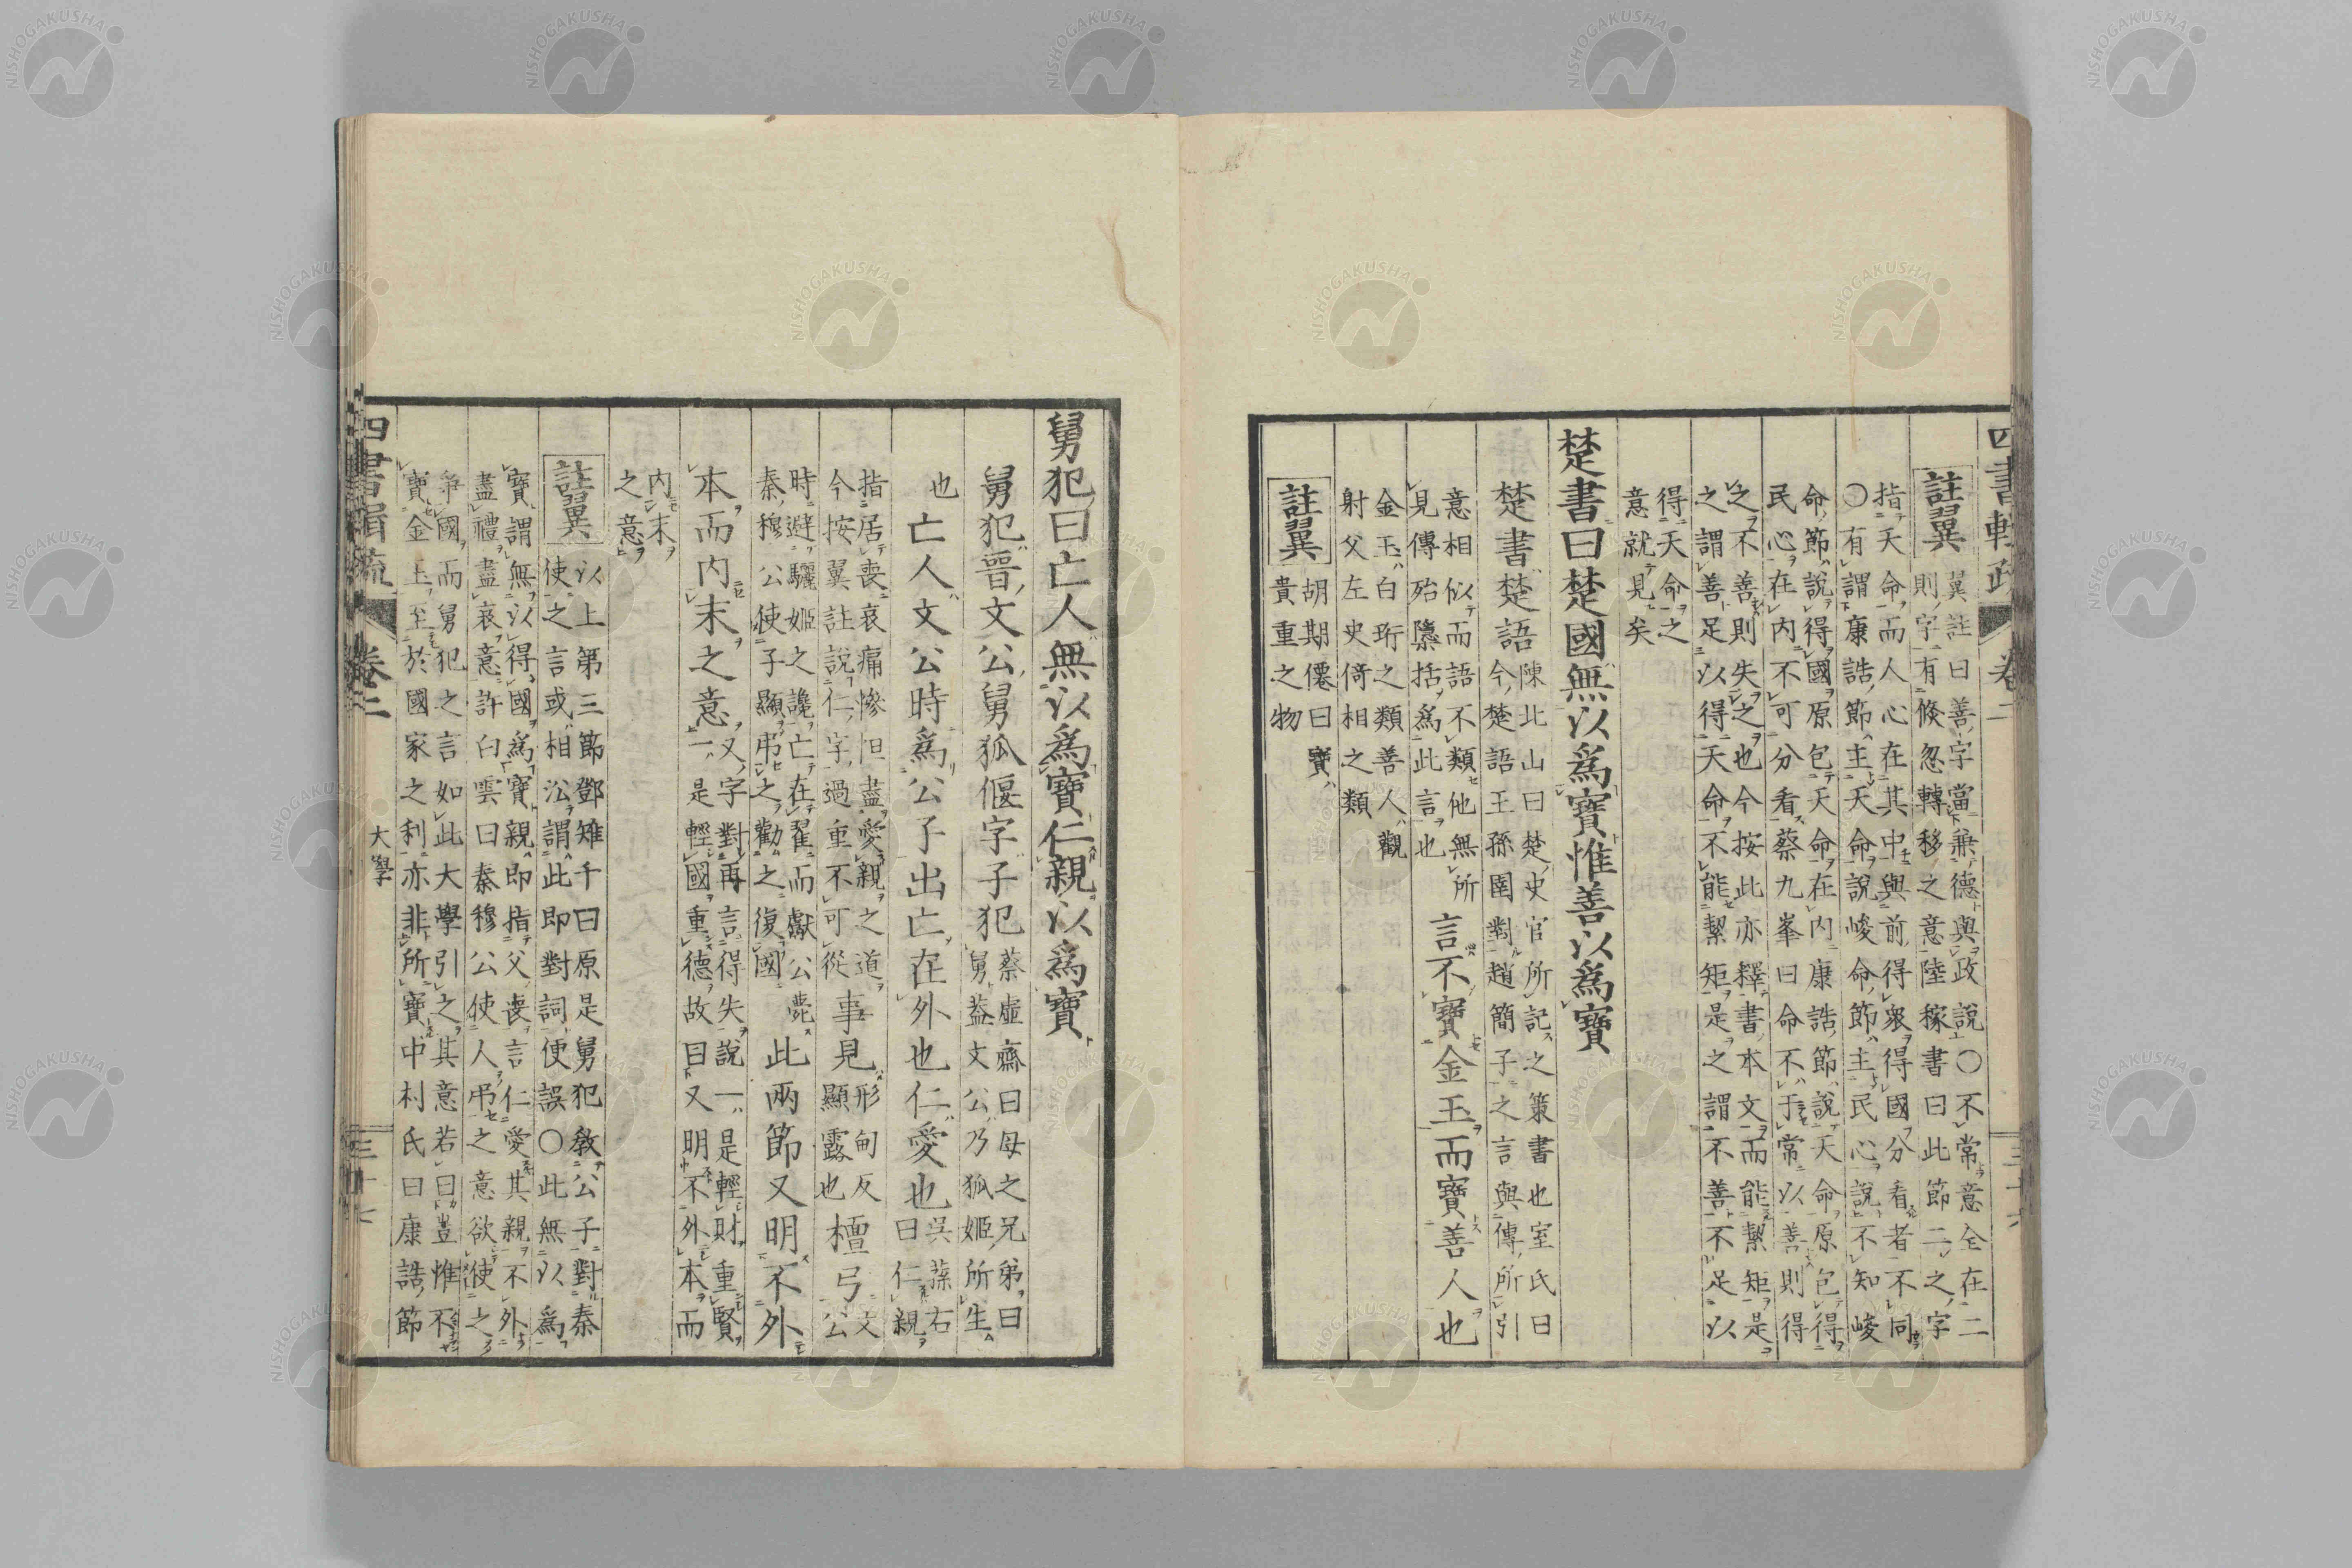 四書輯疏 卷二
註翼 翼註曰善字當兼德與政說〇不常意全在二
則字有倐忽轉移之意陸稼書曰此節二之字
指天命而人心在其中與前得衆得國分看者不同
〇有謂康誥節主天命說峻命節主民心說不知峻
命節說得國原包天命在内康誥節說天命原包得
民心在内不可分看蔡九峯曰命不于常以善則得
之不善則失之也今按此亦釋書本文而能絜矩是
之謂善足以得天命不能絜矩是之謂不善不足以
得天命之
意就見矣
楚書曰楚國無以爲寶惟善以爲寶
楚書楚語 陳北山曰楚史官所記之策書也室氏曰
今楚語王孫圉對趙簡子之言與傳所引
意相似而語不類他無所
見傳殆隱括爲此言也
言不寶金玉而寶善人也
金玉白珩之類善人觀
射父左史倚相之類
註翼 胡期僊曰寶
貴重之物
舅犯曰亡人無以爲寶仁親以爲寶
舅犯晉文公舅狐偃字子犯 蔡虛齋曰母之兄弟曰
舅蓋文公乃狐姬所生
也亡人文公時爲公子出亡在外也仁愛也 吳蓀右
曰仁親
指居喪哀痛慘怛盡愛親之道
今按翼註說仁字過重不可從
事見 形甸反
顯露也
檀弓 文
公
時避驪姬之讒亡在翟而獻公薨
秦穆公使子顯弔之勸之復國
此兩節又明不外
本而内末之意 又字對再言得失說一是輕財重賢
一是輕國重德故曰又明不外本而
内末
之意
註翼 以上第三節鄧雉千曰原是舅犯敎公子對秦
使之言或相沿謂此即對詞便誤〇此無以爲
寶謂無以得國爲寶親即指父喪言仁愛其親不外
盡禮盡哀意許白雲曰秦穆公使人弔之意欲使之
爭國而舅犯之言如此大學引之其意若曰豈惟不
寶金玉至於國家之利亦非所寶中村氏曰康誥節
四書輯疏 卷二
大學
NISHOGAKUSHA